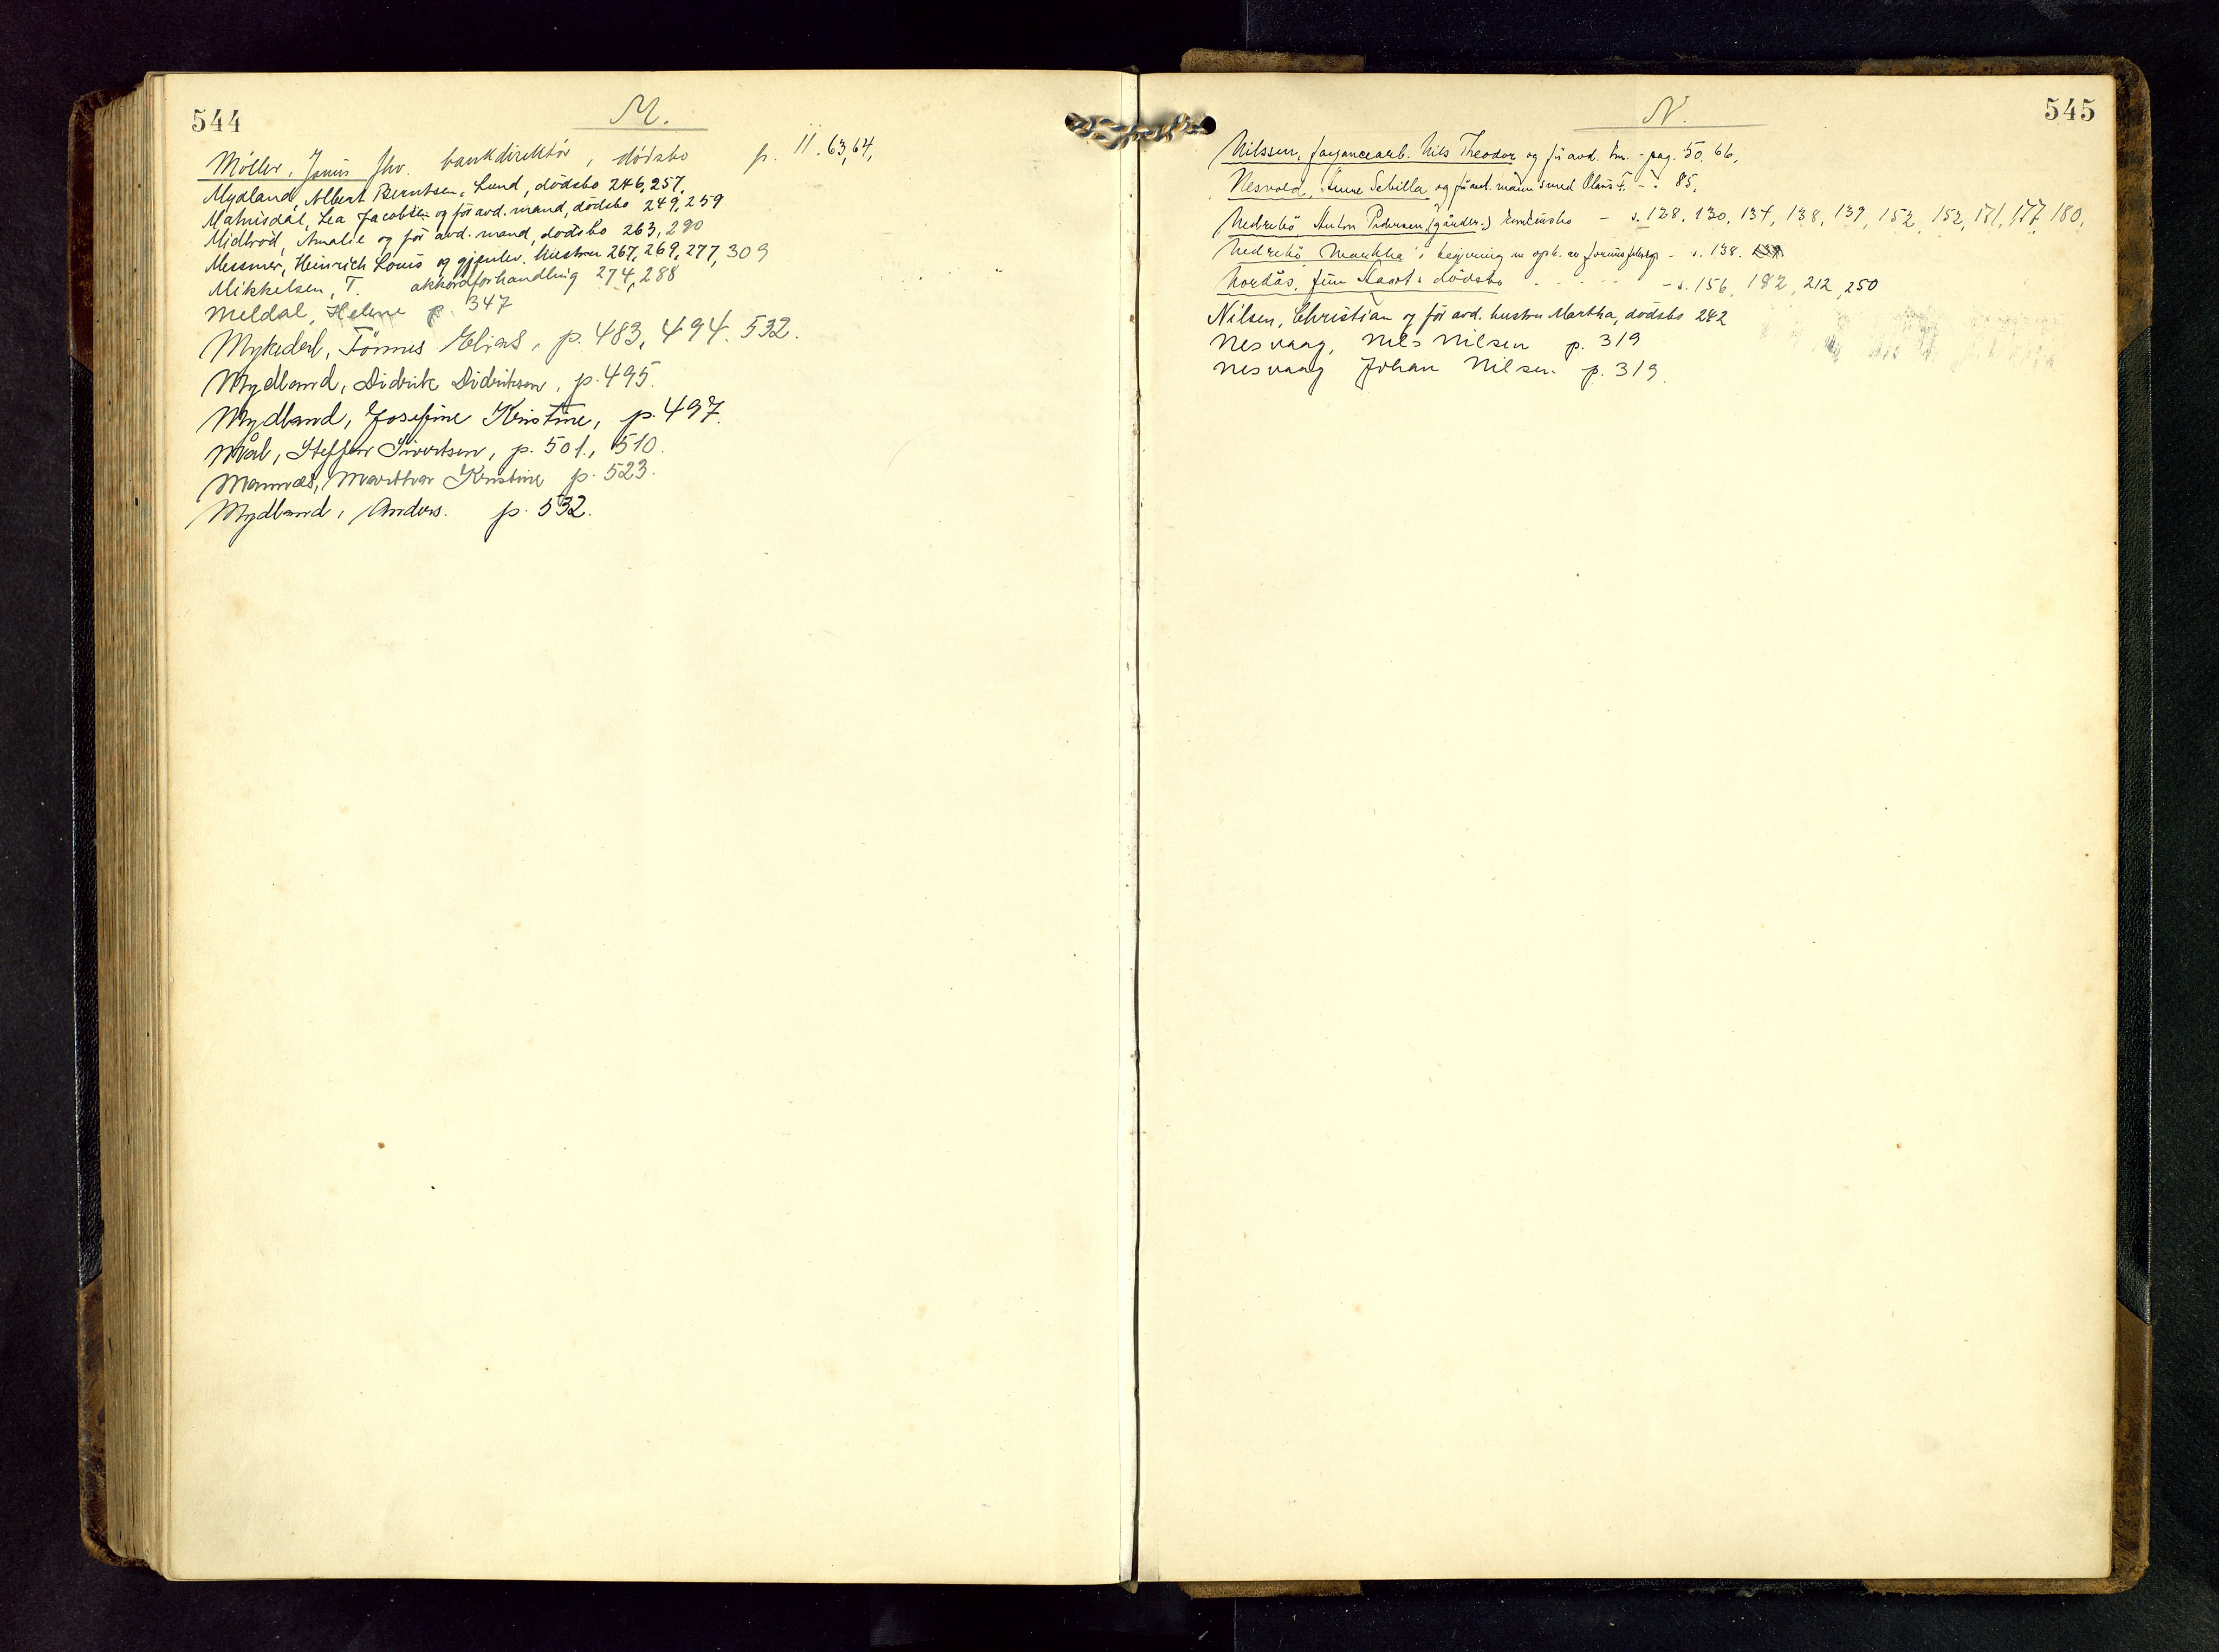 544
M.
Möller, Jonas Chr. bankdirektör, dödsbo p. 11. 63, 64,
Mydland, Albert Berntsen, Lund, dödsbo 246, 257,
Matnisdal, Lea Jacobsen og för avd. mand, dödsbo 249, 259
Midbröd, Amalie og för avd. mand, dödsbo 263, 290
Messmer, Heinrich Louis og gjenlev. hustru 267, 269, 277, 309
Mikkelsen, T. akkordforhandling 274, 288
Meldal, Helene p. 347
Mykedal, Tönnes Elias, p. 483, 494. 532.
Mydland, Didrik Didriksen, p. 495.
Mydland, Josefine Kristine, p. 497.
Mål, Steffen Sivertsen, p. 501., 510.
Mannæs, Martha Kristine p. 523.
Mydland, Anders. p. 532.
545
N.
Nilssen, Nils Theodor og för avd. - pag. 50, 66,
Nesvold, Anne Sebilla og för avd. mann smed Olaus - 85.
Nedrebö, Anton Pedersen (gårdbr.) konkursbo - s. 128, 130, 137, 138, 139, 152, 152, 171, 177, 180,
Nedrebö Markha begjæring om oph. av - s. 138.
Nordås, dödsbo - s. 156, 182, 212, 250
Nilsen, Christian og för avd. hustru Martha, dödsbo 242
Nesvaag, Nils Nilsen p. 319
Nesvaag Johan Nilsen p. 319.